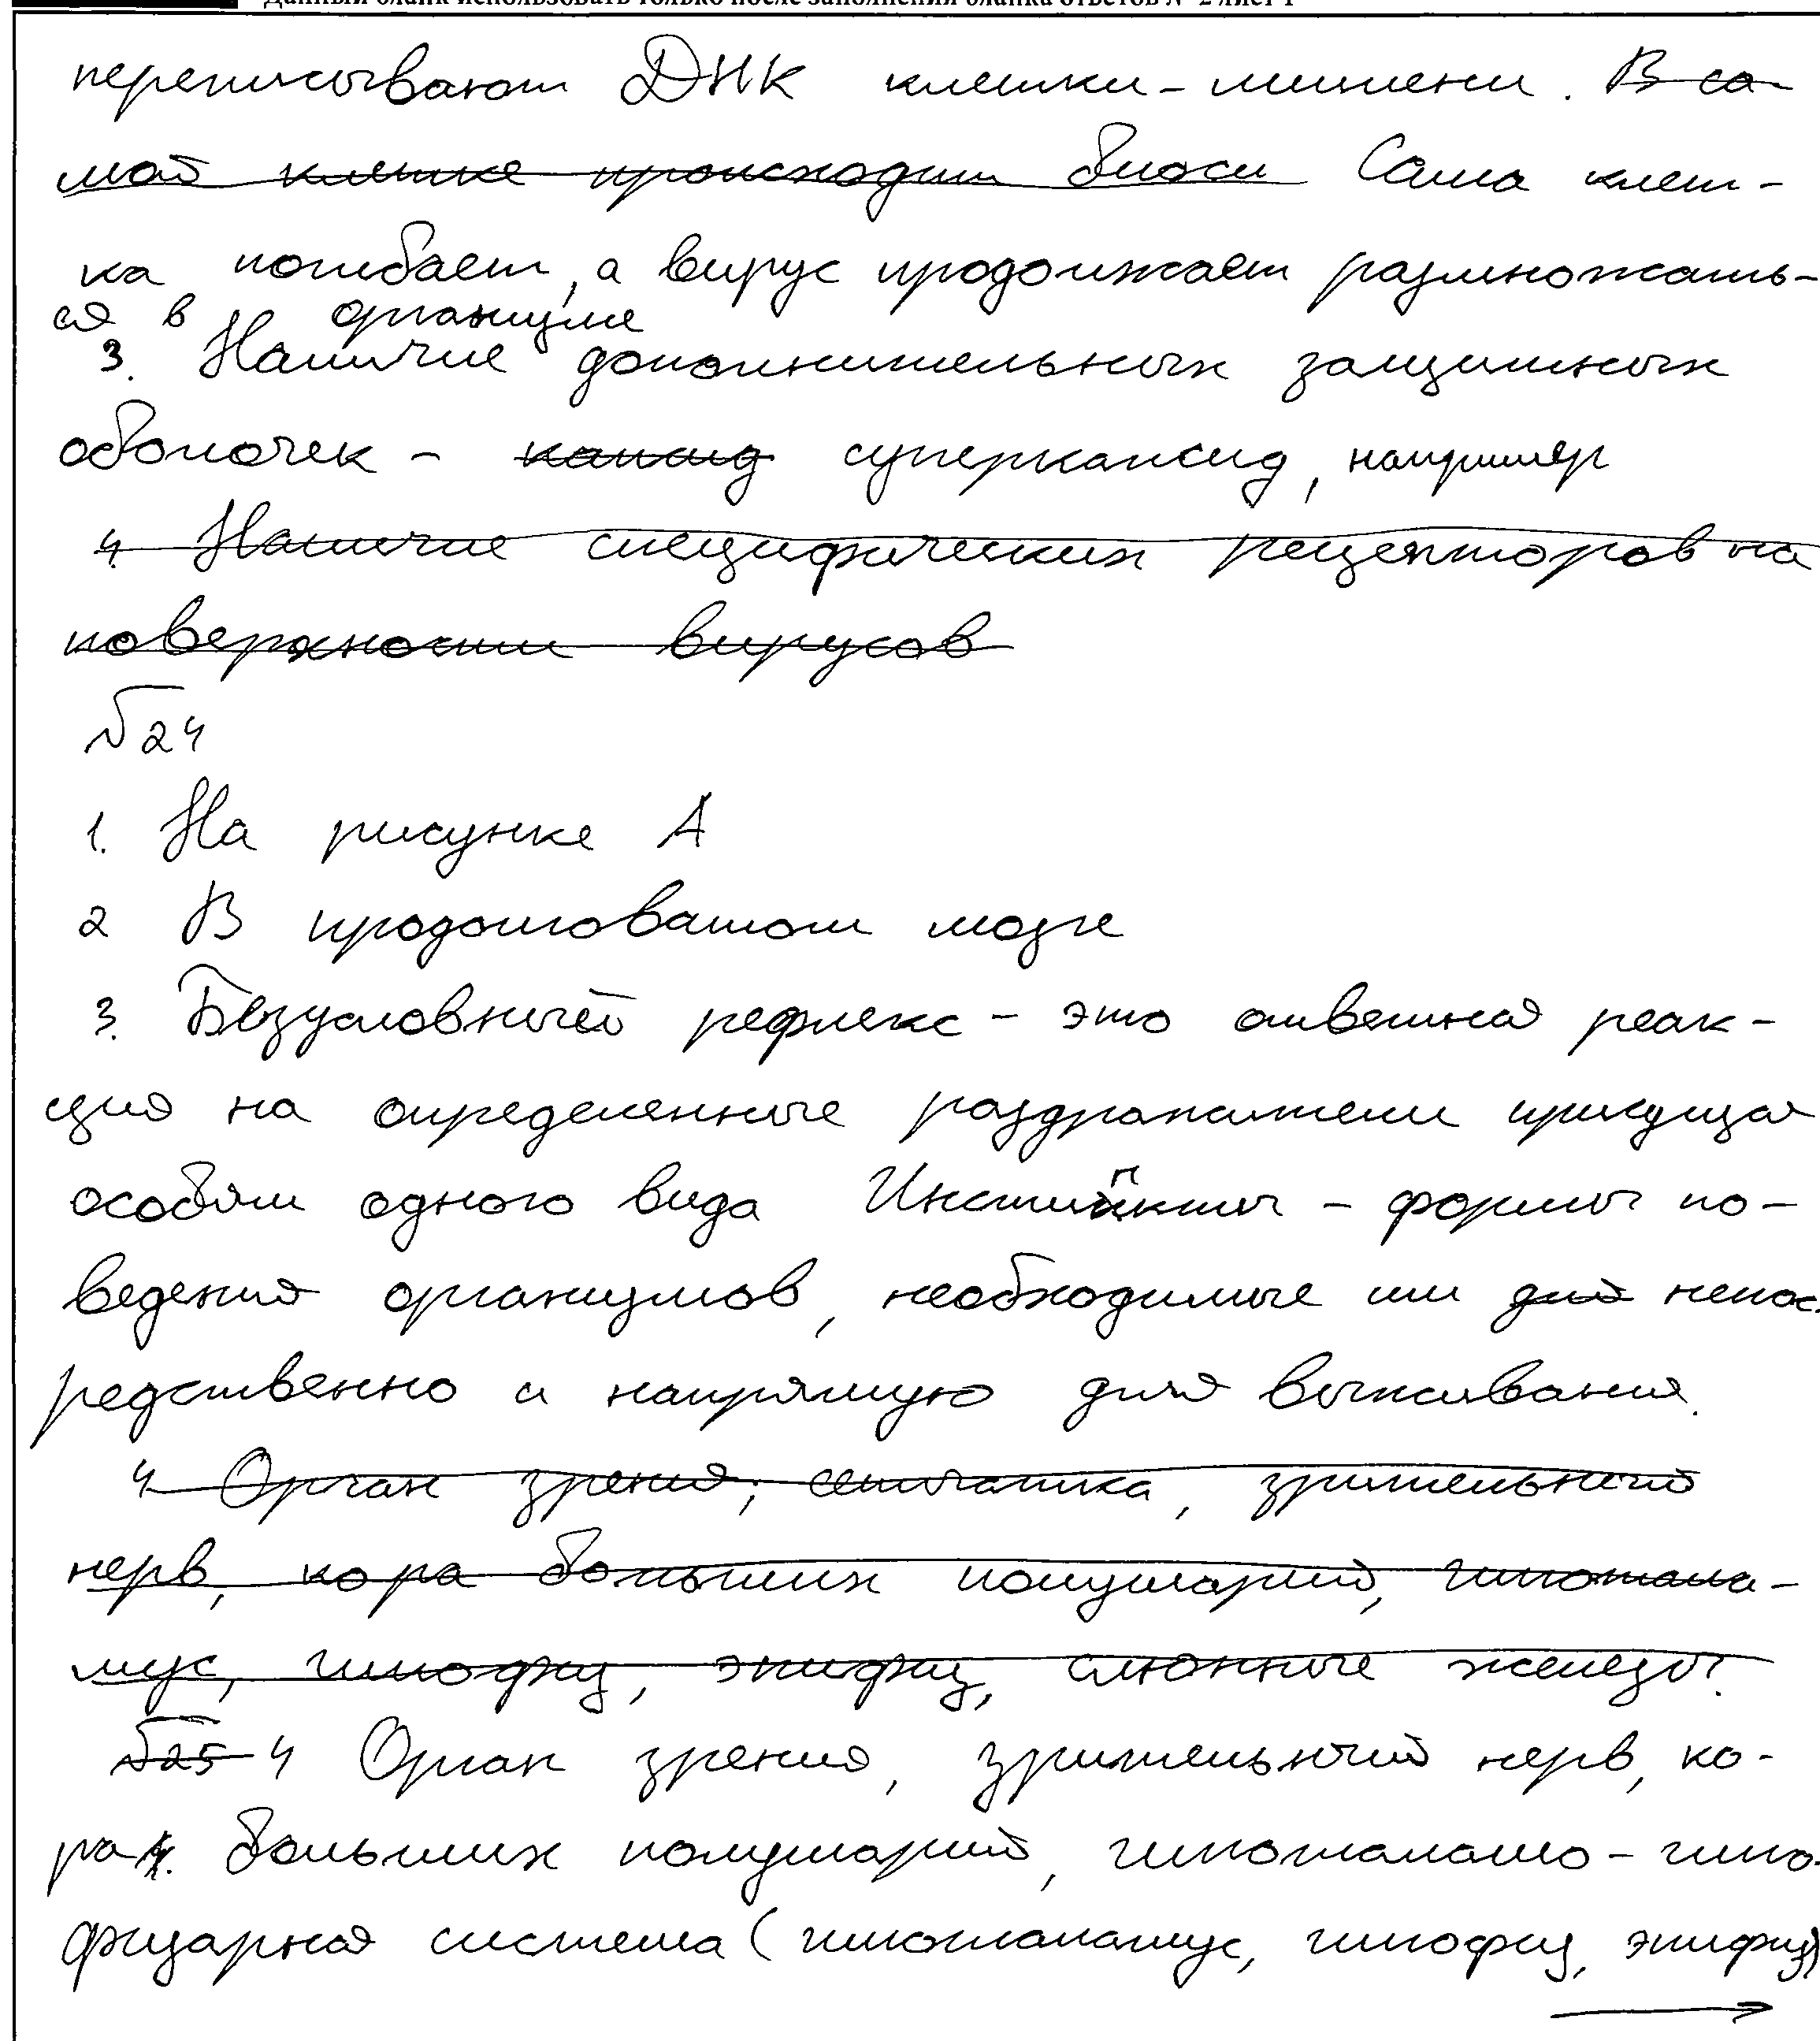 Данный бланк использовать только после заполнения бланка ответов № 2 лист 1
переписывают ДНК клетки-мишени. В са-
мой клетке происходит биоси Сама клет-
ка погибает, а вирус продолжает размножать-
ся в организме
3. Наличие дополнительных защитных
оболочек - капсид суперкапсид, например
4. Наличие специфических рецепторов на
поверхности вирусов
№24
1. На рисунке А
2 В продолговатом мозге
3. Безусловный рефлекс - это ответная реак-
ция на определенные раздражители присущая
особям одного вида Инстинкты - формы по-
ведения организмов, необходимые им для непос
редственно и напрямую для выживания.
4 Орган зрения; сетчатка, зрительный
нерв, кора больших полушарий, гипотала-
мус, гипофиз, эпифиз, слюнные железы.
№25 4 Орган зрения, зрительный нерв, ко-
ра больших полушарий, гипоталамо-гипо-
физарная система (гипоталамус, гипофиз, эпифиз)